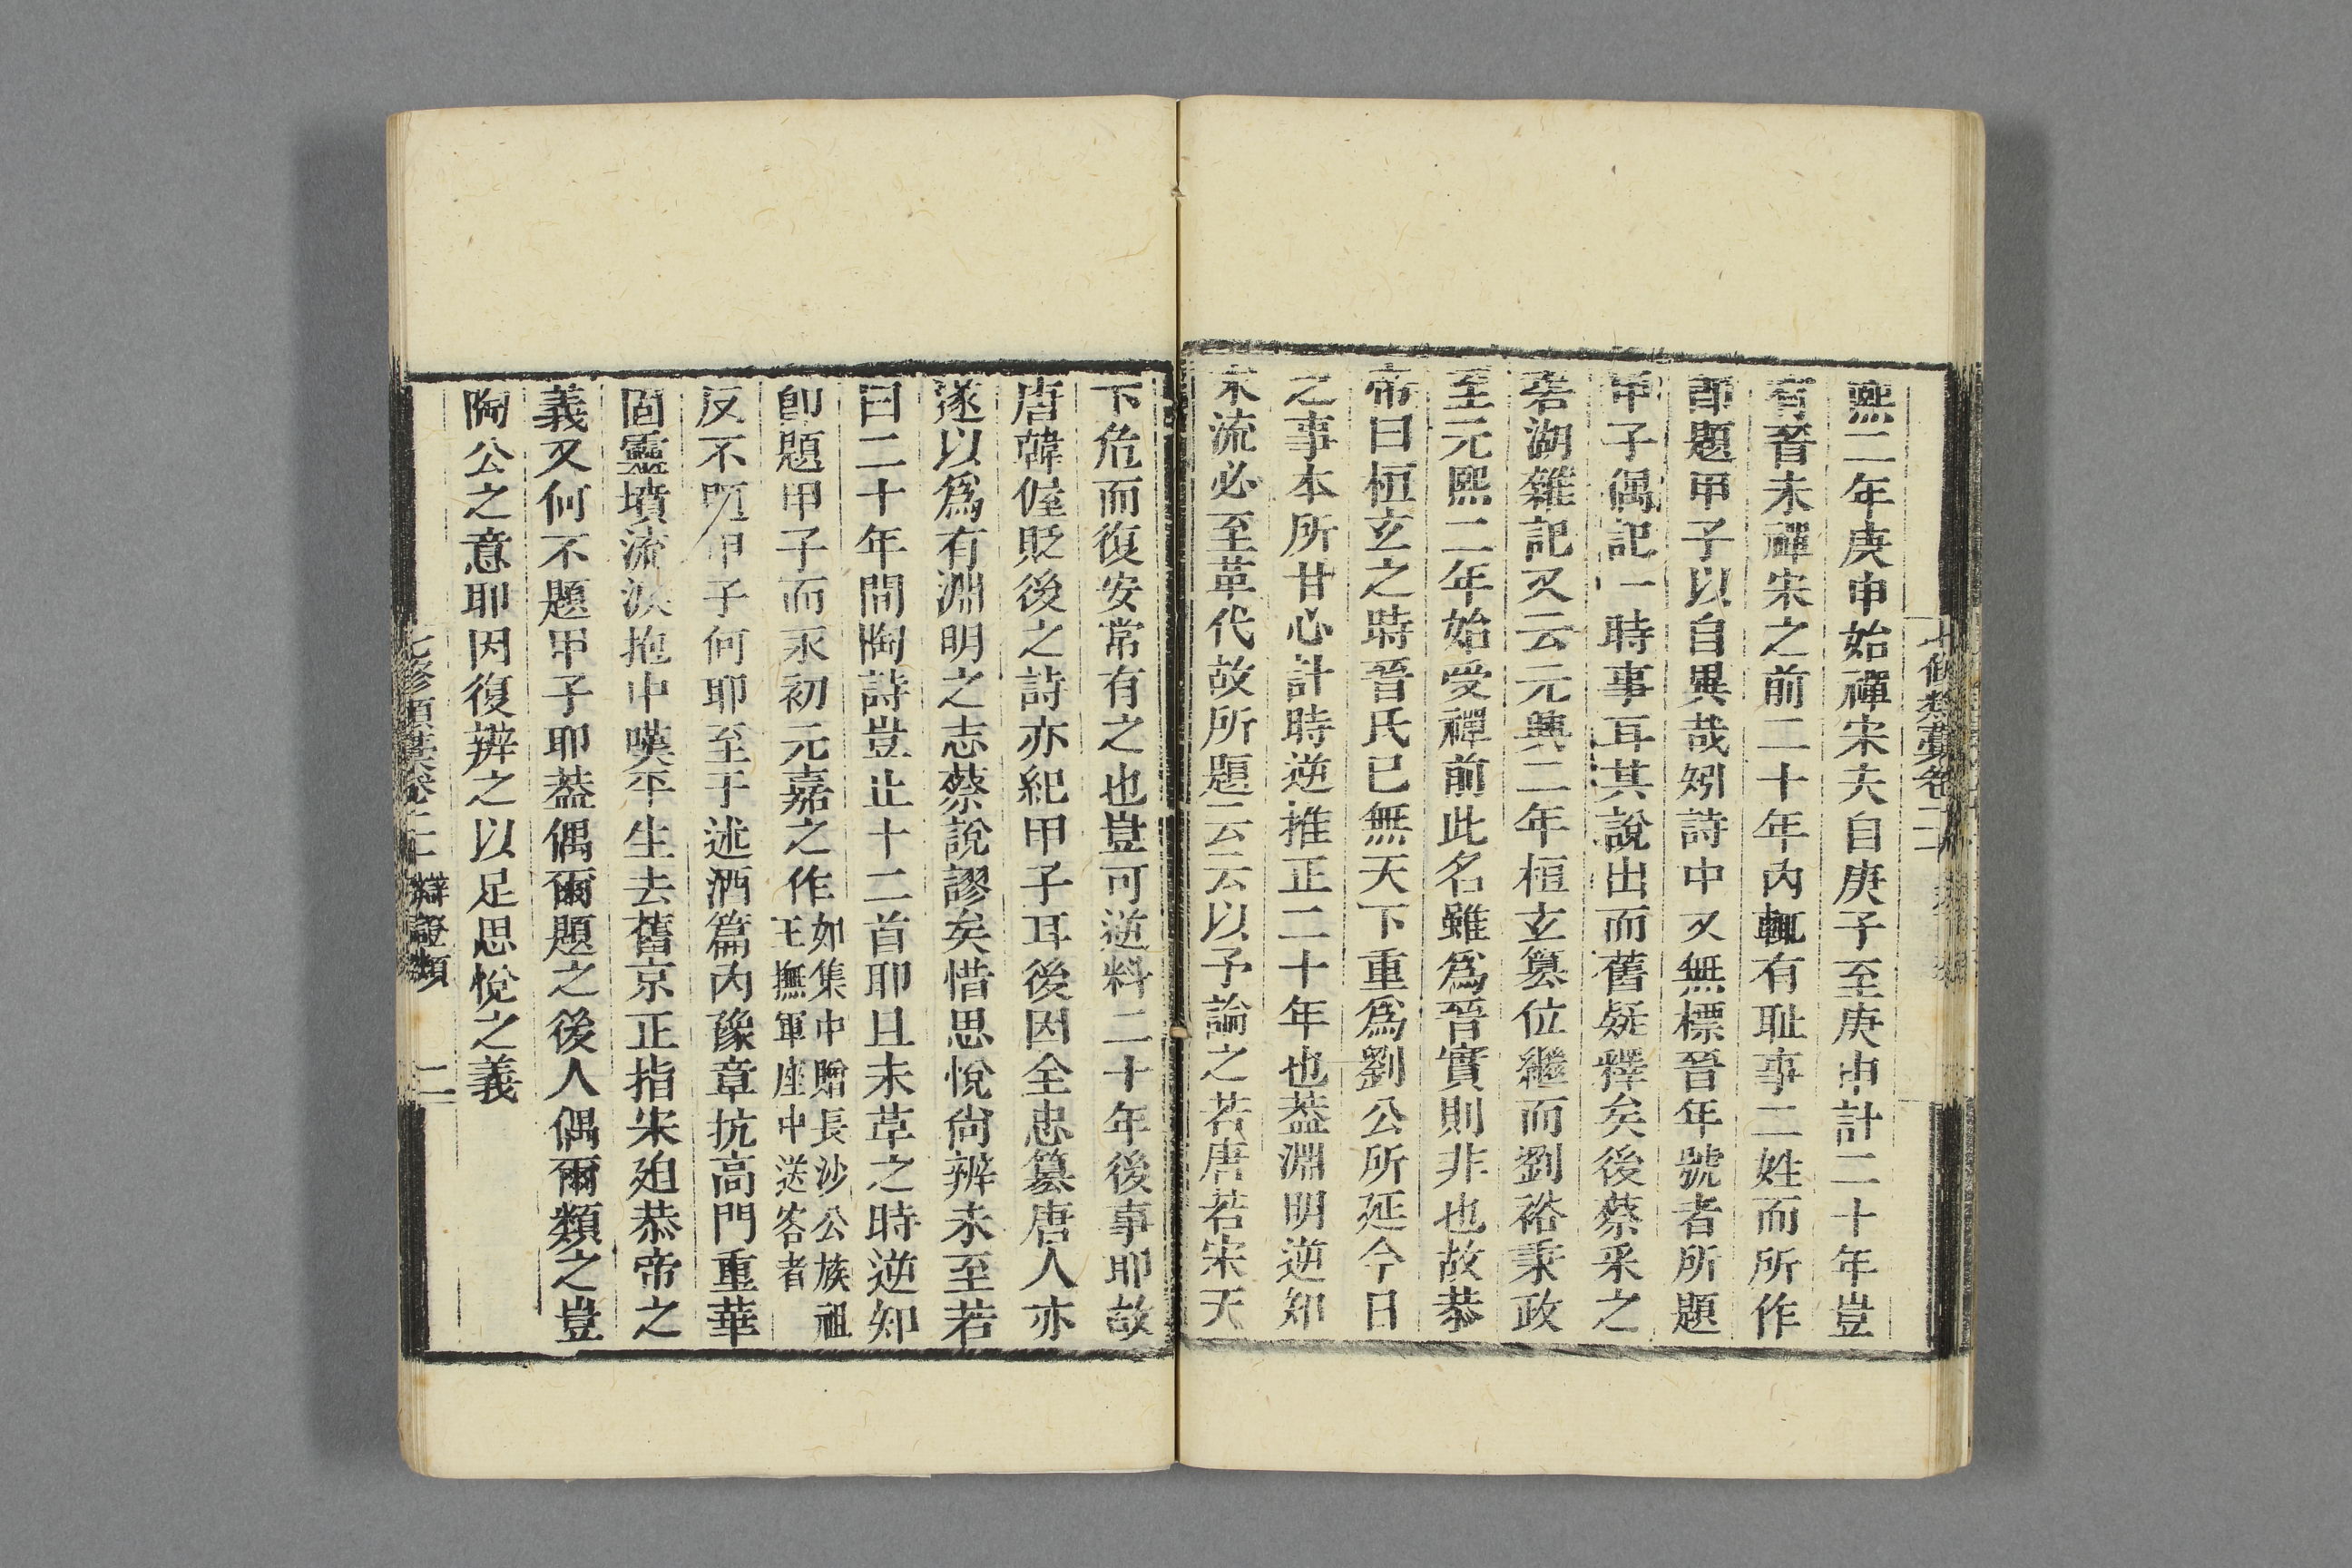 熙二年庚申始禪宋夫自庚子至庚申計二十年豈
有晉未禪宋之前二十年內輒有耻事二姓而所作
卽題甲子以自異哉矧詩中又無標晉年號者所題
甲子偶記一時事耳其說出而舊疑釋矣後蔡采之
碧湖雜記又云元興二年桓玄篡位繼而劉裕秉政
至元熙二年始受禪前此名雖爲晉實則非也故恭
帝曰桓玄之時晉氏已無天下重爲劉公所延今日
之事本所甘心計時逆推正二十年也葢淵明逆知
末流必至革代故所題云云以予論之若唐若宋天
下危而復安常有之也豈可逆料二十年後事耶故
唐韓偓貶後之詩亦紀甲子耳後因全忠篡唐人亦
遂以爲有淵明之志蔡說謬矣惜思悅尙辨未至若
曰二十年間陶詩豈止十二首耶且未革之時逆知
卽題甲子而永初元嘉之作如集中贈長沙公族祖
王撫軍座中送客者
反不題甲子何耶至于述酒篇內豫章抗高門重華
固靈墳流淚抱中嘆平生去舊京正指宋廹恭帝之
義又何不題甲子耶葢偶爾題之後人偶爾類之豈
陶公之意耶因復辨之以足思悅之義
七修類藁卷二十 辯證類 二